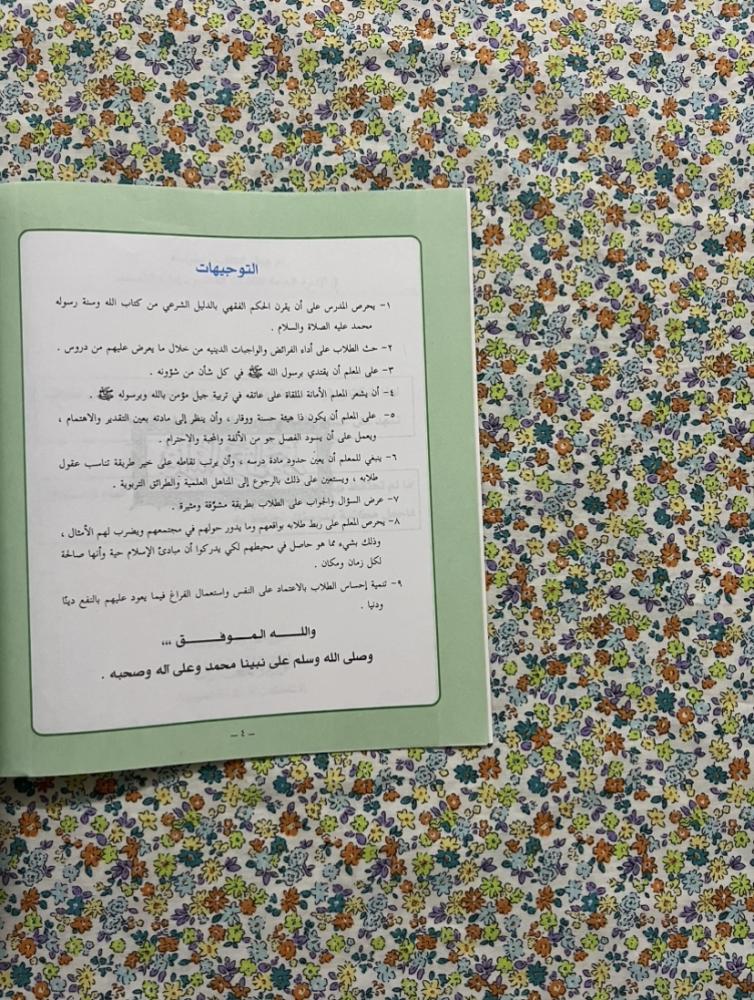 التوجيهات
١- يحرص المدرس على أن يقرن الحكم الفقهي بالدليل الشرعي من كتاب الله وسنة رسوله
محمد عليه الصلاة والسلام .
٢- حث الطلاب على أداء الفرائض والواجبات الدينيه من خلال ما يعرض عليهم من دروس .
٣- على المعلم أن يقتدي برسول الله ﷺ في كل شأن من شؤونه .
٤- أن يشعر المعلم الأمانة الملقاة على عاتقه في تربية جيل مؤمن بالله وبرسوله ﷺ .
٥- على المعلم أن يكون ذا هيئة حسنة ووقار ، وأن ينظر إلى مادته بعين التقدير والاهتمام ،
ويعمل على أن يسود الفصل جو من الألفة والمحبة والاحترام .
٦- ينبغي للمعلم أن يعين حدود مادة درسه ، وأن يرتب نقاطه على خير طريقة تناسب عقول
طلابه ، ويستعين على ذلك بالرجوع إلى المناهل العلمية والطرائق التربوية .
٧- عرض السؤال والجواب على الطلاب بطريقة مشوّقة ومثيرة .
٨- يحرص المعلم على ربط طلابه بواقعهم وما يدور حولهم في مجتمعهم ويضرب لهم الأمثال ،
وذلك بشيء مما هو حاصل في محيطهم لكي يدركوا أن مبادئ الإسلام حية وأنها صالحة
لكل زمان ومكان .
٩- تنمية إحساس الطلاب بالاعتماد على النفس واستعمال الفراغ فيما يعود عليهم بالنفع دينًا
ودنيا .
والله الموفق ،،،
وصلى الله وسلم على نبينا محمد وعلى آله وصحبه .
– ٤ –